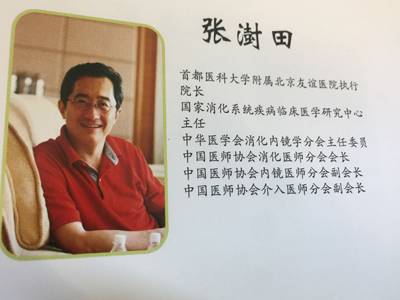 张澍田
首都医科大学附属北京友谊医院执行
院长
国家消化系统疾病临床医学研究中心
主任
中华医学会消化内镜学分会主任委员
中国医师协会消化医师分会会长
中国医师协会内镜医师分会副会长
中国医师协会介入医师分会副会长